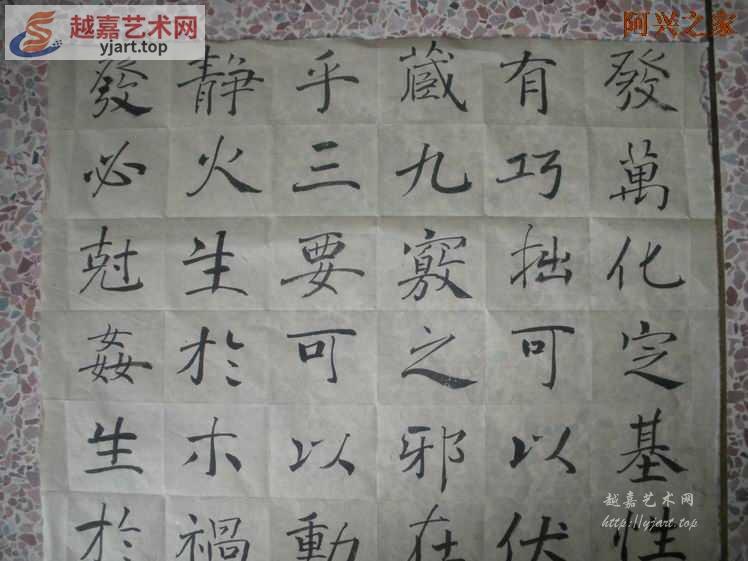 越嘉艺术网
yjart.top
阿兴之家
發萬化定基性
有巧拙可以伏
蔵九竅之邪在
乎三要可以動
靜火生於木禍
發必尅姦生於
越嘉艺术网
http://yjart.top